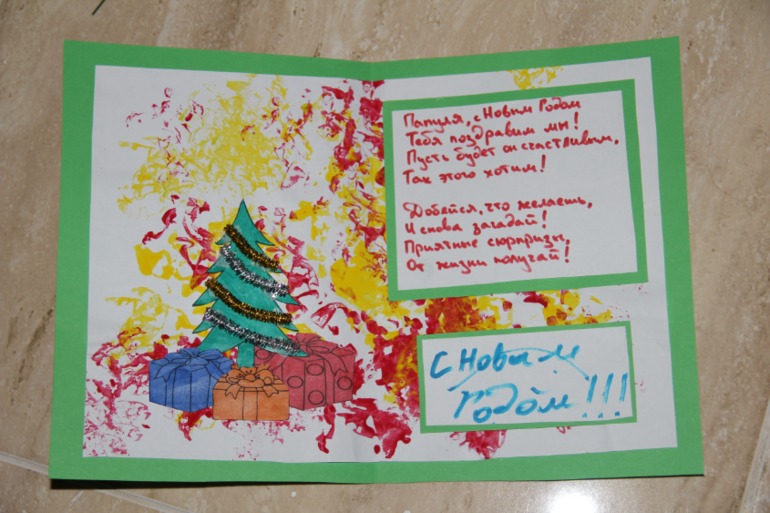 Папуля, с Новым Годом
Тебя поздравим мы!
Пусть будет он счастливым,
Так этого хотим!
Добейся, что желаешь,
И снова загадай!
Приятные сюрпризы,
От жизни получай!
С Новым
Годом!!!